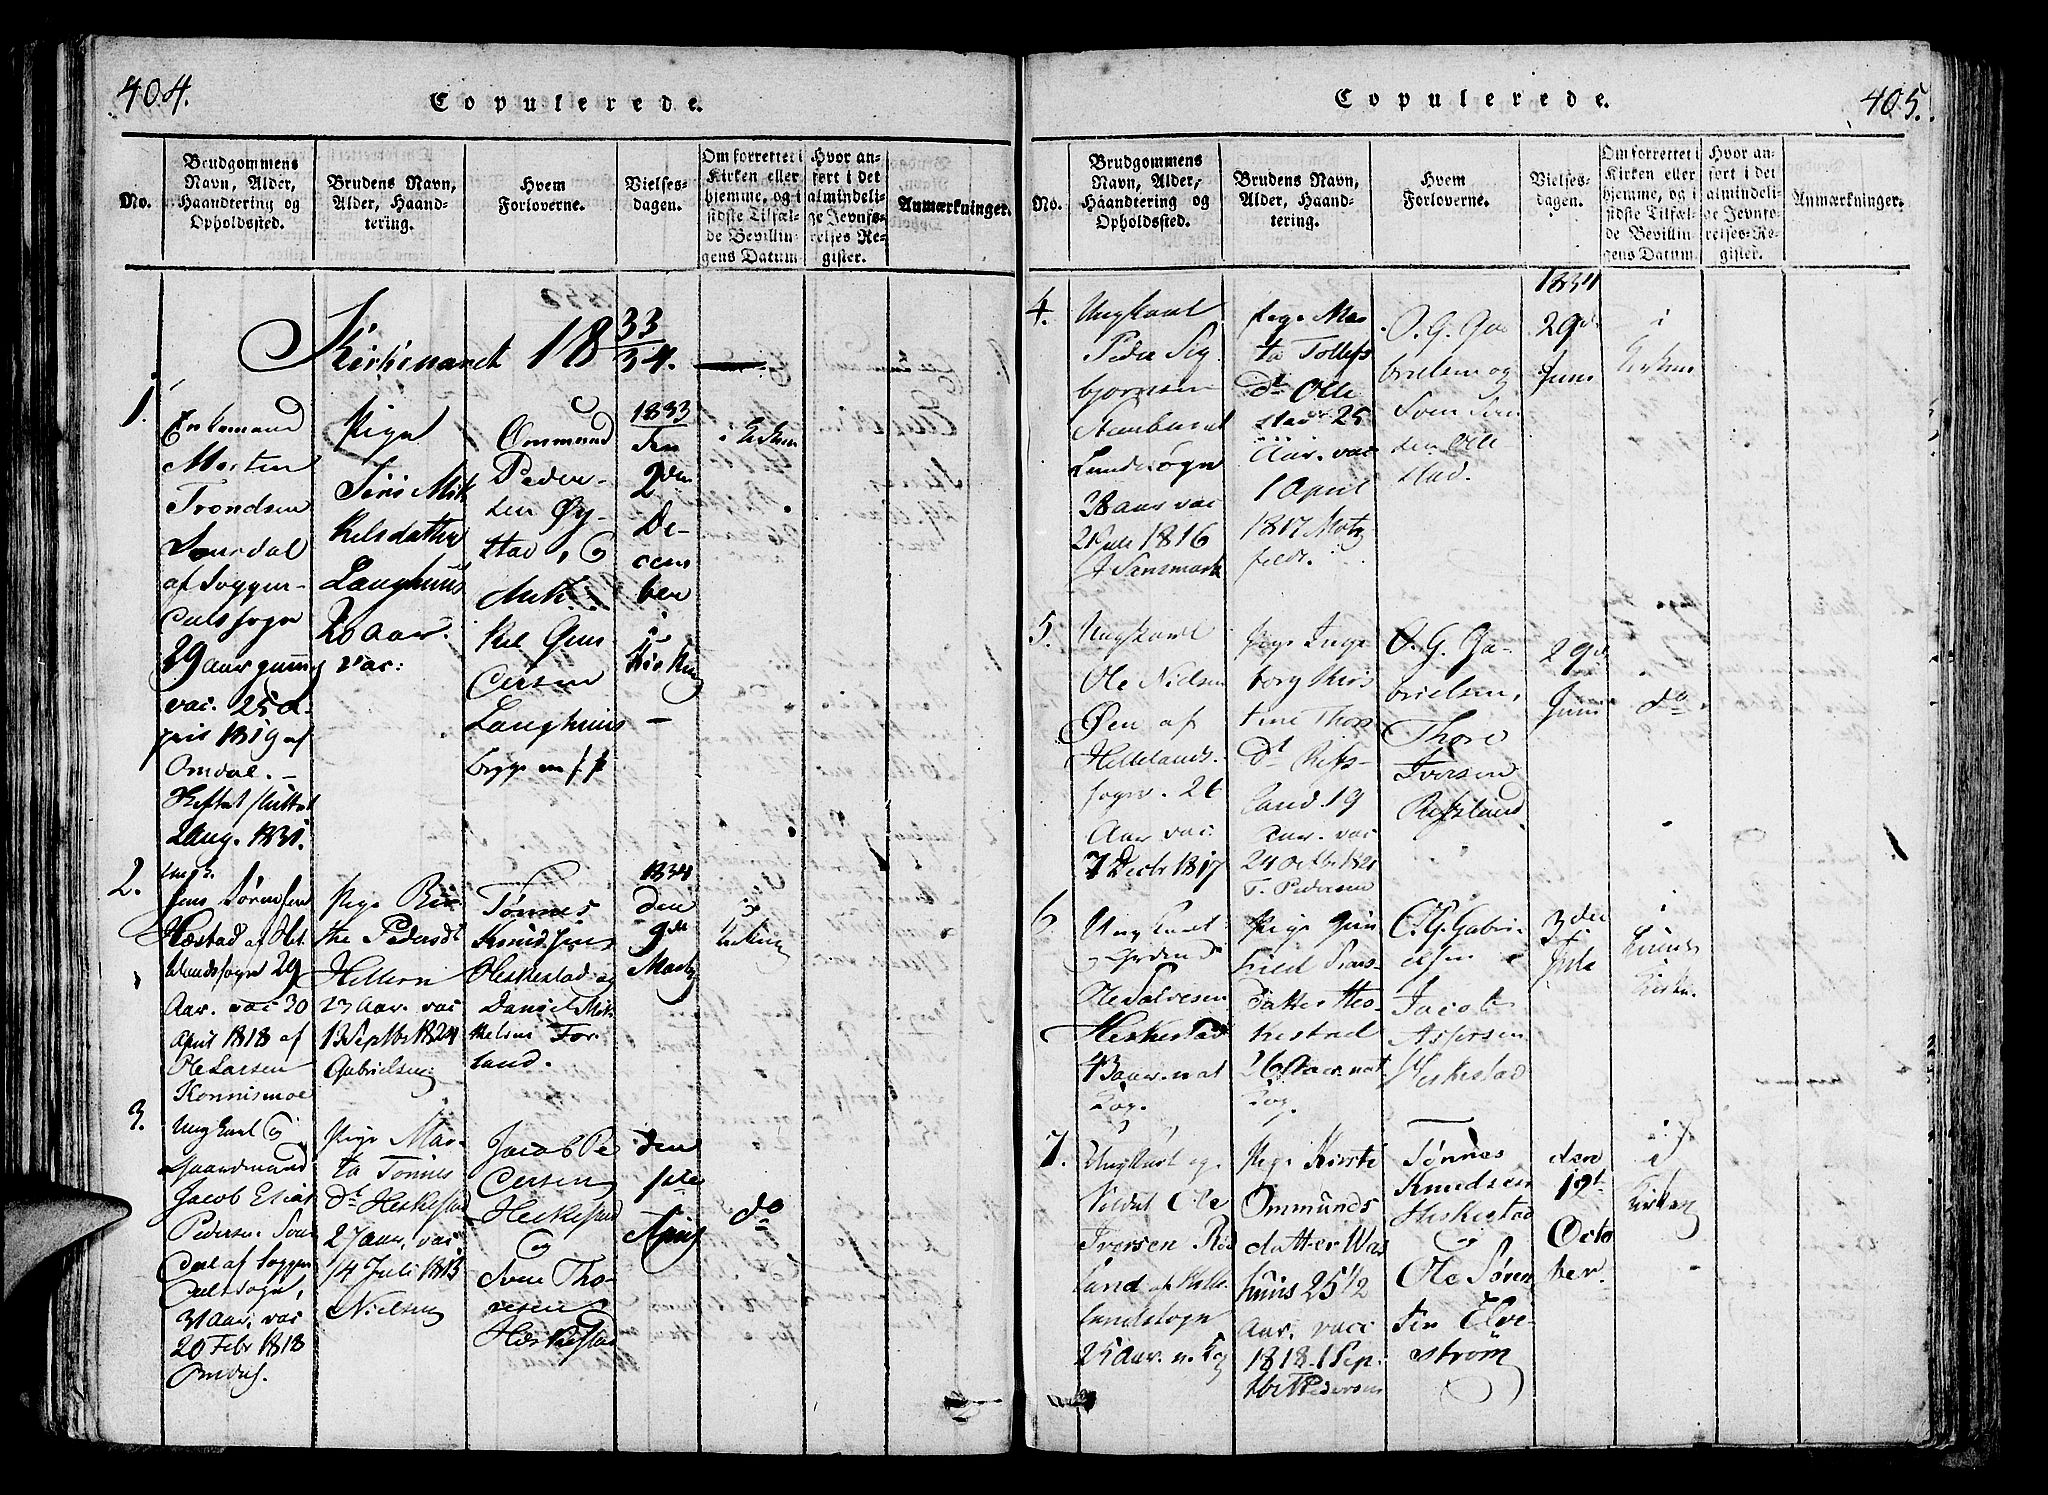 404.
Copulerede.
No.
Brudgommens
Navn, Alder,
Haandtering og
Opholdssted.
Brudens Navn,
Alder, Haand-
tering.
Hvem
Forloverne.
Vielses-
dagen.
Om forrettet i
Kirken eller
hjemme, og i
sidste Tilfæl-
de Bevillin-
gens Datum.
Hvor an-
ført i det
almindeli-
ge Jevnfø-
relses-Re-
gister.
Anmærkninger.
Kirkeaaret 18 33/34.
1.
Enkemand
Morten
Trondsen
af Soggen-
dalssogn
29 aar gammel
vac. 25 A-
pril 1819 af
Omdal. —
Skiftet sluttet
2 Aug. 1831.
Pige
Siri Mik
kelsdatter
Langhuus
20 Aar.
vac:
Ommund
Peder-
sen Øy-
stad, og
Mik-
kel Gun
dersen
Langhuus
begge en f. f.
1833
Den
2den
De-
cem
ber
i
Kirken
—
i Kirken
2.
Ungk.
Jens Sørensen
Hæstad af Hel
lelandssogn 29
Aar. vac 30
April 1818 af
Ole Larsen
Konnismoe
Pige Bir
the Pedersdt
Hellern
23 Aar. vac
1 Septbr 1824
Gabrielsen
Tønnes
Knudsen
Heskestad og
Daniel Mik
kelsen For
land.
1834
den
9de
Martz
i
Kirken
3.
Ungkarl og
Gaardmand
Jacob Elias
Pedersen
af Soggen
dalssogn,
31 Aar, vac
20 Febr 1818
Pige Mar-
ta Tønnes
Dt. Heskestad
27 aar. vac
14 Juli 1815
Nielsen
Jacob Pe
dersen
Heskestad
og
Sven Tho-
resen
Heskestad
den
1ste
April
do
405.
Copulerede.
No.
Brudgommens
Navn, Alder,
Haandtering og
Opholdssted.
Brudens Navn,
Alder, Haand-
tering.
Hvem
Forloverne.
Vielses-
dagen.
Om forrettet i
Kirken eller
hjemme, og i
sidste Tilfæl-
de Bevillin-
gens Datum.
Hvor an-
ført i det
almindeli-
ge Jevnfø-
relses-Re-
gister.
Anmærkninger.
4.
Ungkarl
Peder Sig
bjørnsen
Lundesogn
28 aar vac
21 Juli 1816
Pige Mar
ta Tollefs
Dt. Olle
stad 25
Aar. vac
1 April
1817 Motz
feldt.
O. G. Ga
brielsen og
Sven
Olle
stad.
1834
29de
Juni
i
Kirken
5.
Ungkarl
Ole Nielsen
Øen af
Hellelands-
sogn. 26
Aar vac.
7 Decbr 1817
Pige Inge
borg Kirs
tine Thors
Dt. Refs-
land. 19
Aar. vac
24 Octbr 1821
T. Pedersen
O. G. Ga-
brielsen,
Thore
Iversen
Refsland
29de
Juni
do
6
Ungkarl
Ole Salvesen
Heskestad
43 aar. nat
Kop.
Pige Gun
hild
datter Hes-
kestad
26 Aar. nat
Kop.
O. G. Gabri-
elsen
Jacob
Aspersen
Heskestad
3die
Juli
i
Lunds
Kirke.
7.
Ungkarl og
Soldat Ole
Iversen
land af Helle-
landssogn
25 Aar. n. Kop
Pige Kirsti
Ommunds
datter Was
huus 25 1/2
Aar. vacc
1818. 1 Sep-
tbr T Pedersen
Tønnes
Knudsen
Heskestad
og
Ole Søren
sen Elve-
strøm
den
12t
Octo
ber.
i
Kirken